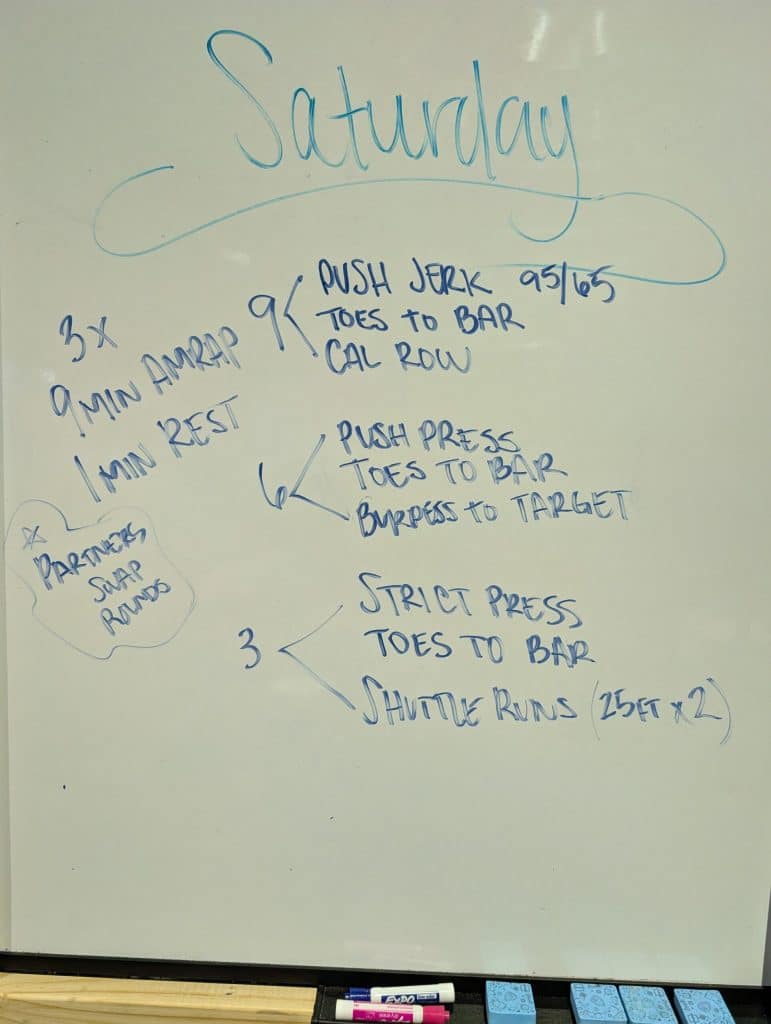 Saturday
3x
9 MIN AMRAP
1 MIN REST
* PARTNERS
SWAP
ROUNDS
9 < PUSH JERK 95/65
TOES to BAR
CAL ROW
6 < PUSH PRESS
TOES TO BAR
BURPESS to TARGET
3 < STRICT PRESS
TOES TO BAR
SHUTTLE RUNS (25FT x 2)
EXPO